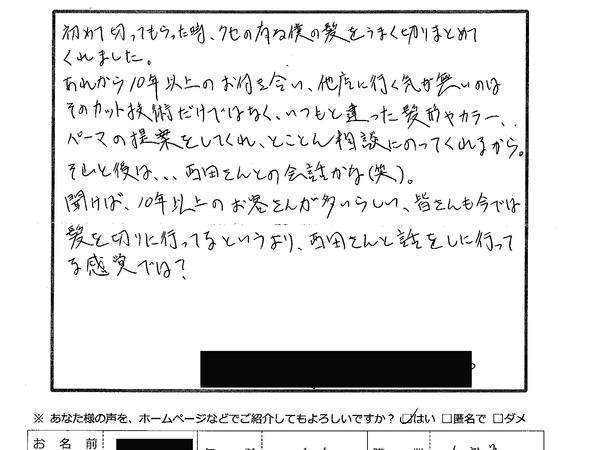 初めて切ってもらった時、クセの有る僕の髪をうまく切りまとめて
くれました。
あれから10年以上のお付き合い、他店に行く気が無いのは
そのカット技術だけではなく、いつもと違った髪形やカラー、
パーマの提案をしてくれ、とことん相談にのってくれるから。
それと後は、、、西田さんとの会話かな(笑)。
聞けば、10年以上のお客さんが多いらしい、皆さんも今では
髪を切りに行ってるというより、西田さんと話をしに行って
る感覚では？
※ あなた様の声を、ホームページなどでご紹介してもよろしいですか？ ☑はい □匿名で □ダメ
お名前